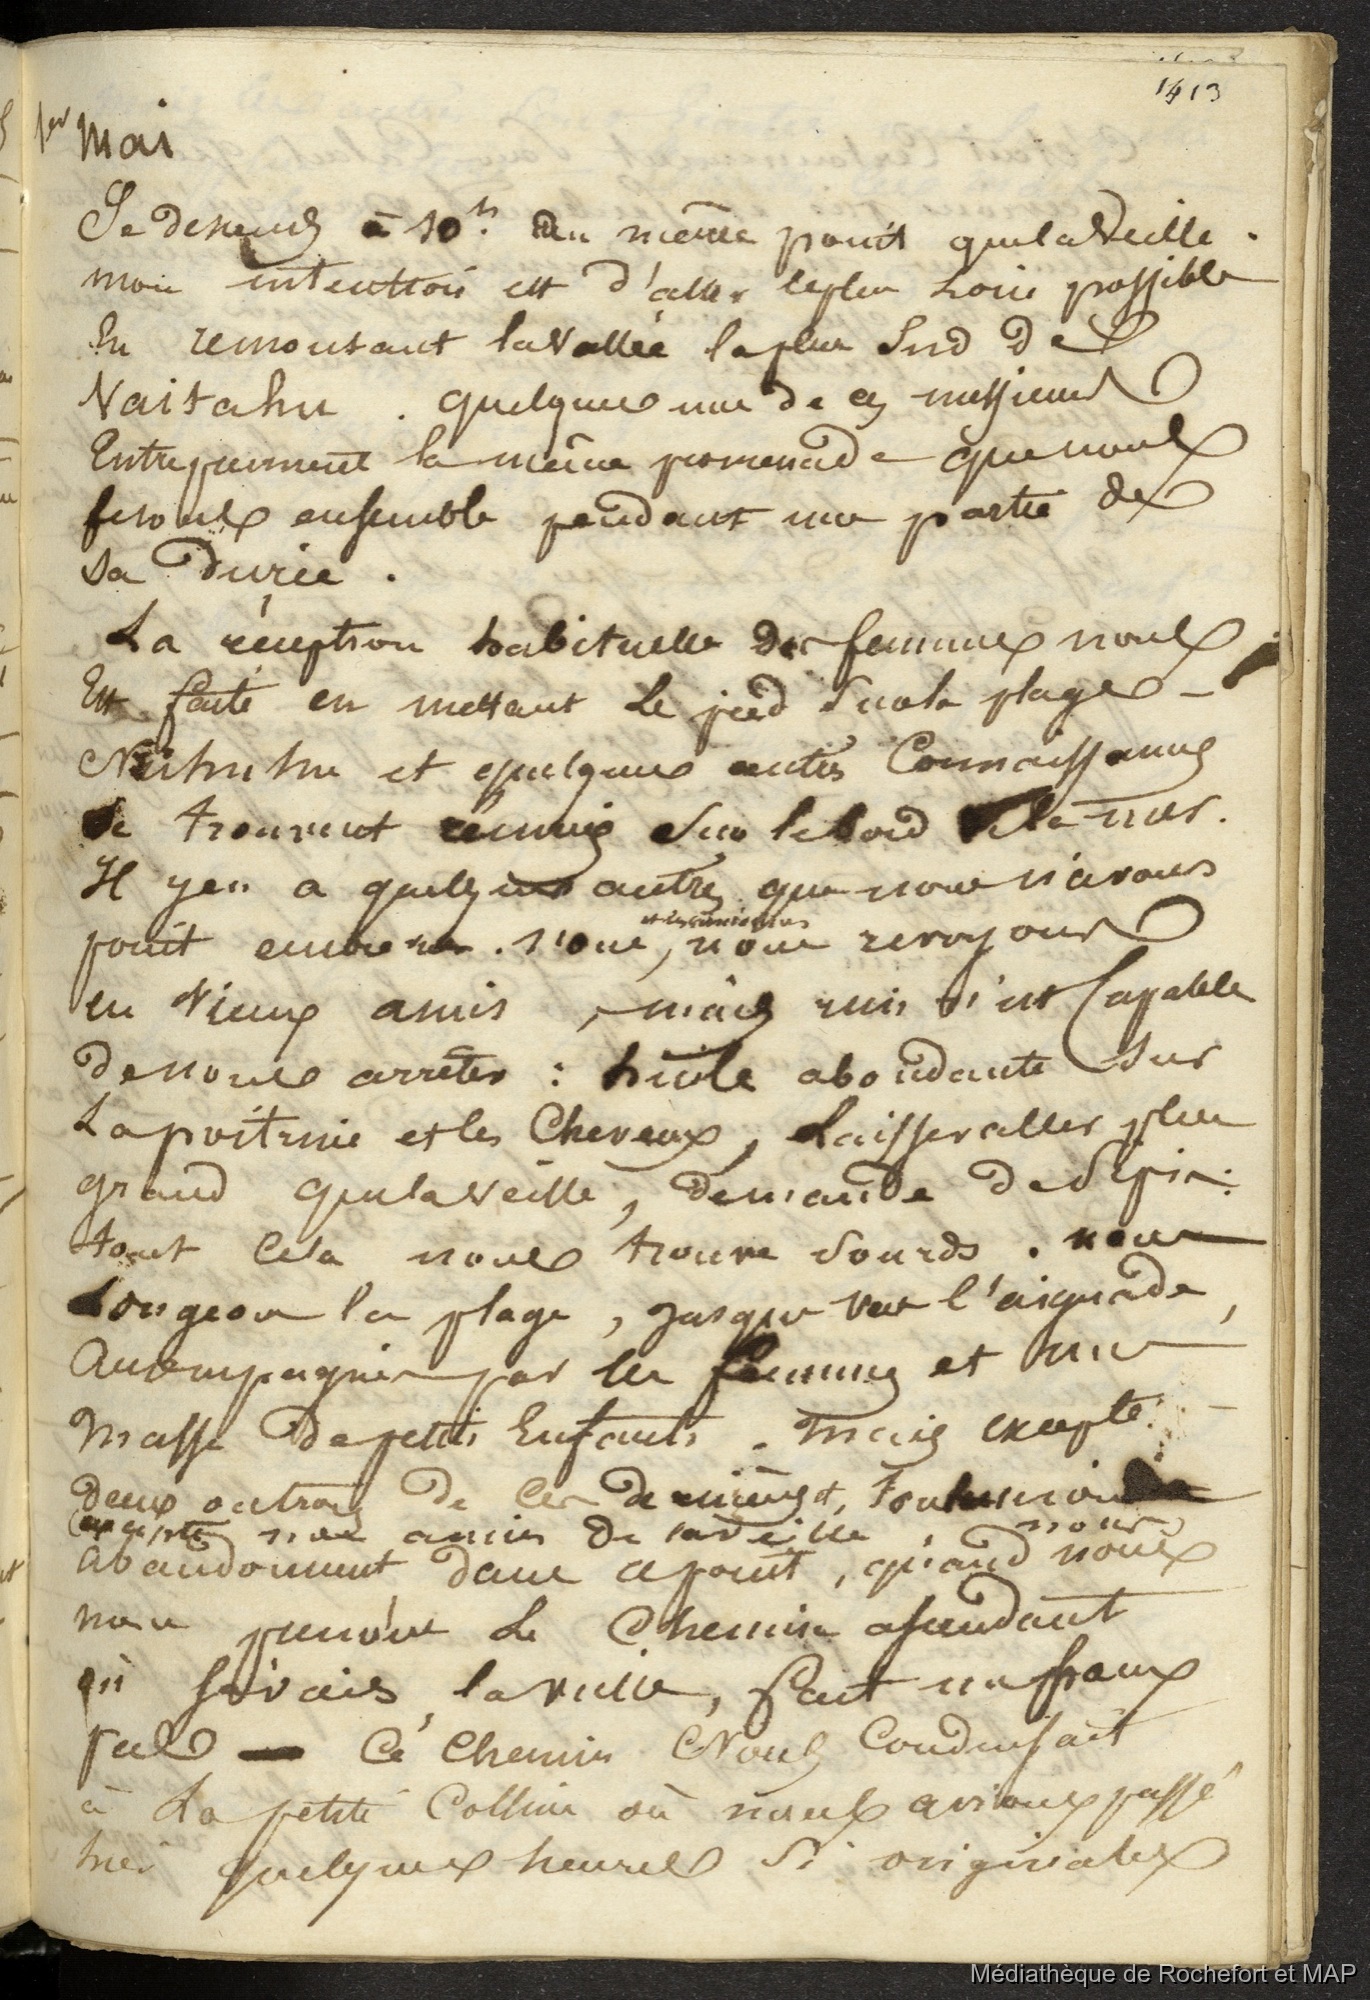 1413
1er mai
Je descends à 10h. au même point que la veille.
mon intention est d'aller le plus loin possible
En remontant la vallée la plus Sud de
Vaitahu. quelques uns de ces messieurs
Entreprennent la même promenade que nous
ferons ensemble pendant une partie de
sa durée.
La réception habituelle des femmes nous
Est faite en mettant le pied sur la plage -
Nihuhu et quelques autres Connaissances
se trouvent réunies sur le bord de la mer.
Il y en a quelques autres que nous n'avons
point encore vu. nous, nous revoyons
en vieux amis, mais rien n'est Capable
de nous arrêter : huile abondante sur
La poitrine et les Cheveux, Laisser aller plus
grand que la veille, demande de
tout cela nous trouve sourds. nous
Longeons la plage, jusque vers l'aiguade,
Accompagnés par les femmes et une
masse de petits Enfants. mais excepté
deux ou trois de ces dernières,
excepté nos amies de la veille, nous
abandonnent dans ce point, quand nous
nous prenons le Chemin ascendant
où j'avais, la veille, fait un faux
pas — Ce Chemin Nous Conduisait
à La petite Colline où nous avions passé
hier quelques heures si originales
Médiathèque de Rochefort et MAP